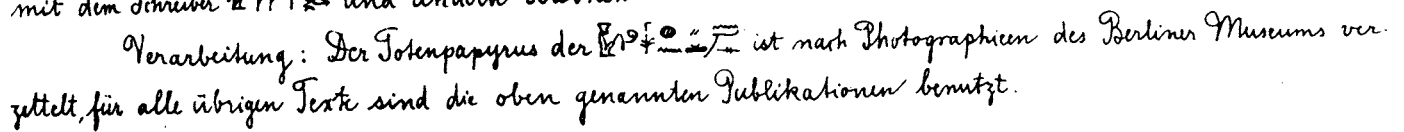 mit dem Schreiber und
Verarbeitung: Der Totenpapyrus der ist nach Photographieen des Berliner Museums ver-
zettelt, für alle übrigen Texte sind die oben genannten Publikationen benutzt.